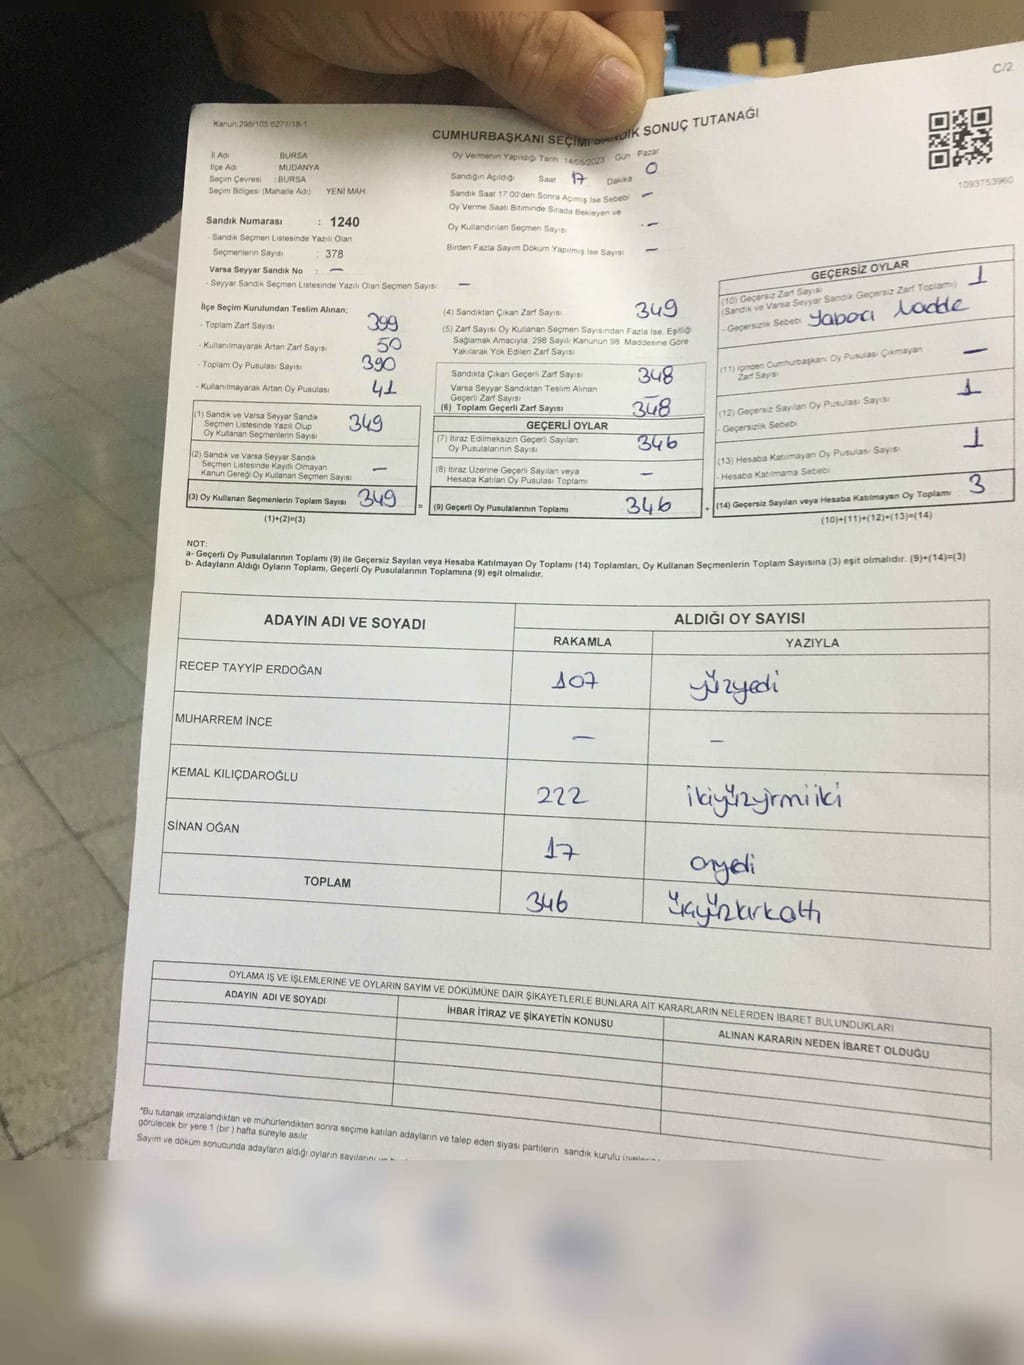 C/2
Kanun:298/105-6271/18-1
CUMHURBAŞKANI SEÇİMİ SANDIK SONUÇ TUTANAĞI
1093753960
İl Adı BURSA
İlçe Adı MUDANYA
Seçim Çevresi : BURSA
Seçim Bölgesi (Mahalle Adı) YENİ MAH
Sandık Numarası : 1240
- Sandık Seçmen Listesinde Yazılı Olan
Seçmenlerin Sayısı : 378
Varsa Seyyar Sandık No : —
- Seyyar Sandık Seçmen Listesinde Yazılı Olan Seçmen Sayısı —
Oy Vermenin Yapıldığı Tarih 14/05/2023 Gün Pazar
Sandığın Açıldığı Saat 17 Dakika 0
Sandık Saat 17:00'den Sonra Açımış İse Sebebi —
Oy Verme Saati Bitiminde Sırada Bekleyen ve
Oy Kullandırılan Seçmen Sayısı —
Birden Fazla Sayım Döküm Yapılmış İse Sayısı —
İlçe Seçim Kurulundan Teslim Alınan;
- Toplam Zarf Sayısı 399
- Kullanılmayarak Artan Zarf Sayısı 50
- Toplam Oy Pusulası Sayısı 390
- Kullanılmayarak Artan Oy Pusulası 41
(1) Sandık ve Varsa Seyyar Sandık
Seçmen Listesinde Yazılı Olup
Oy Kullanan Seçmenlerin Sayısı 349
(2) Sandık ve Varsa Seyyar Sandık
Seçmen Listesinde Kayıtlı Olmayan
Kanun Gereği Oy Kullanan Seçmen Sayısı —
(3) Oy Kullanan Seçmenlerin Toplam Sayısı 349
(1)+(2)=(3)
=
(4) Sandıktan Çıkan Zarf Sayısı 349
(5) Zarf Sayısı Oy Kullanan Seçmen Sayısından Fazla İse, Eşitliği
Sağlamak Amacıyla; 298 Sayılı Kanunun 98. Maddesine Göre
Yakılarak Yok Edilen Zarf Sayısı
Sandıkta Çıkan Geçerli Zarf Sayısı 348
Varsa Seyyar Sandıktan Teslim Alınan
Geçerli Zarf Sayısı —
(6) Toplam Geçerli Zarf Sayısı 348
GEÇERLİ OYLAR
(7) İtiraz Edilmeksizin Geçerli Sayılan
Oy Pusulalarının Sayısı 346
(8) İtiraz Üzerine Geçerli Sayılan veya
Hesaba Katılan Oy Pusulası Toplamı —
(9) Geçerli Oy Pusulalarının Toplamı 346
+
GEÇERSİZ OYLAR
(10) Geçersiz Zarf Sayısı 1
(Sandık ve Varsa Seyyar Sandık Geçersiz Zarf Toplamı)
- Geçersizlik Sebebi Yabacı Madde
(11) İçinden Cumhurbaşkanı Oy Pusulası Çıkmayan
Zarf Sayısı —
(12) Geçersiz Sayılan Oy Pusulası Sayısı 1
- Geçersizlik Sebebi
(13) Hesaba Katılmayan Oy Pusulası Sayısı 1
- Hesaba Katılmama Sebebi
(14) Geçersiz Sayılan veya Hesaba Katılmayan Oy Toplamı 3
(10)+(11)+(12)+(13)=(14)
NOT:
a- Geçerli Oy Pusulalarının Toplamı (9) ile Geçersiz Sayılan veya Hesaba Katılmayan Oy Toplamı (14) Toplamları, Oy Kullanan Seçmenlerin Toplam Sayısına (3) eşit olmalıdır. (9)+(14)=(3)
b- Adayların Aldığı Oyların Toplamı, Geçerli Oy Pusulalarının Toplamına (9) eşit olmalıdır.
ADAYIN ADI VE SOYADI ALDIĞI OY SAYISI
RAKAMLA YAZIYLA
RECEP TAYYİP ERDOĞAN 107 yüzyedi
MUHARREM İNCE — —
KEMAL KILIÇDAROĞLU 222 ikiyüzyirmiiki
SİNAN OĞAN 17 onyedi
TOPLAM 346 üçyüzkırkaltı
OYLAMA İŞ VE İŞLEMLERİNE VE OYLARIN SAYIM VE DÖKÜMÜNE DAİR ŞİKAYETLERLE BUNLARA AİT KARARLARIN NELERDEN İBARET BULUNDUKLARI
ADAYIN ADI VE SOYADI İHBAR İTİRAZ VE ŞİKAYETİN KONUSU ALINAN KARARIN NEDEN İBARET OLDUĞU
*Bu tutanak imzalandıktan ve mühürlendikten sonra seçime katılan adayların ve talep eden siyasi partilerin sandık kurulu
görülecek bir yere 1 (bir) hafta süreyle asılır
Sayım ve döküm sonucunda adayların aldığı oyların sayılarını